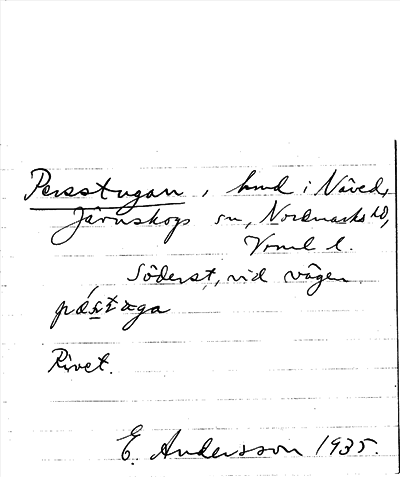 Persstugan, hmd i Näved,
Järnskogs sn, Nordmarks hd,
Vrml l.
Söderst, vid vägen
pæ̀s̠tæga
Rivet.
E. Andersson 1935.